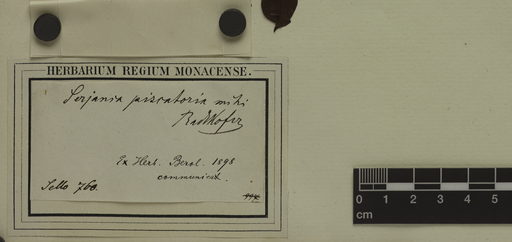 HERBARIUM REGIUM MONACENSE.
Serjania piscatoria mihi
Radlkofer
Ex Herb. Berol. 1898
communicat.
Sello 760.
0 1 2 3 4 5
cm